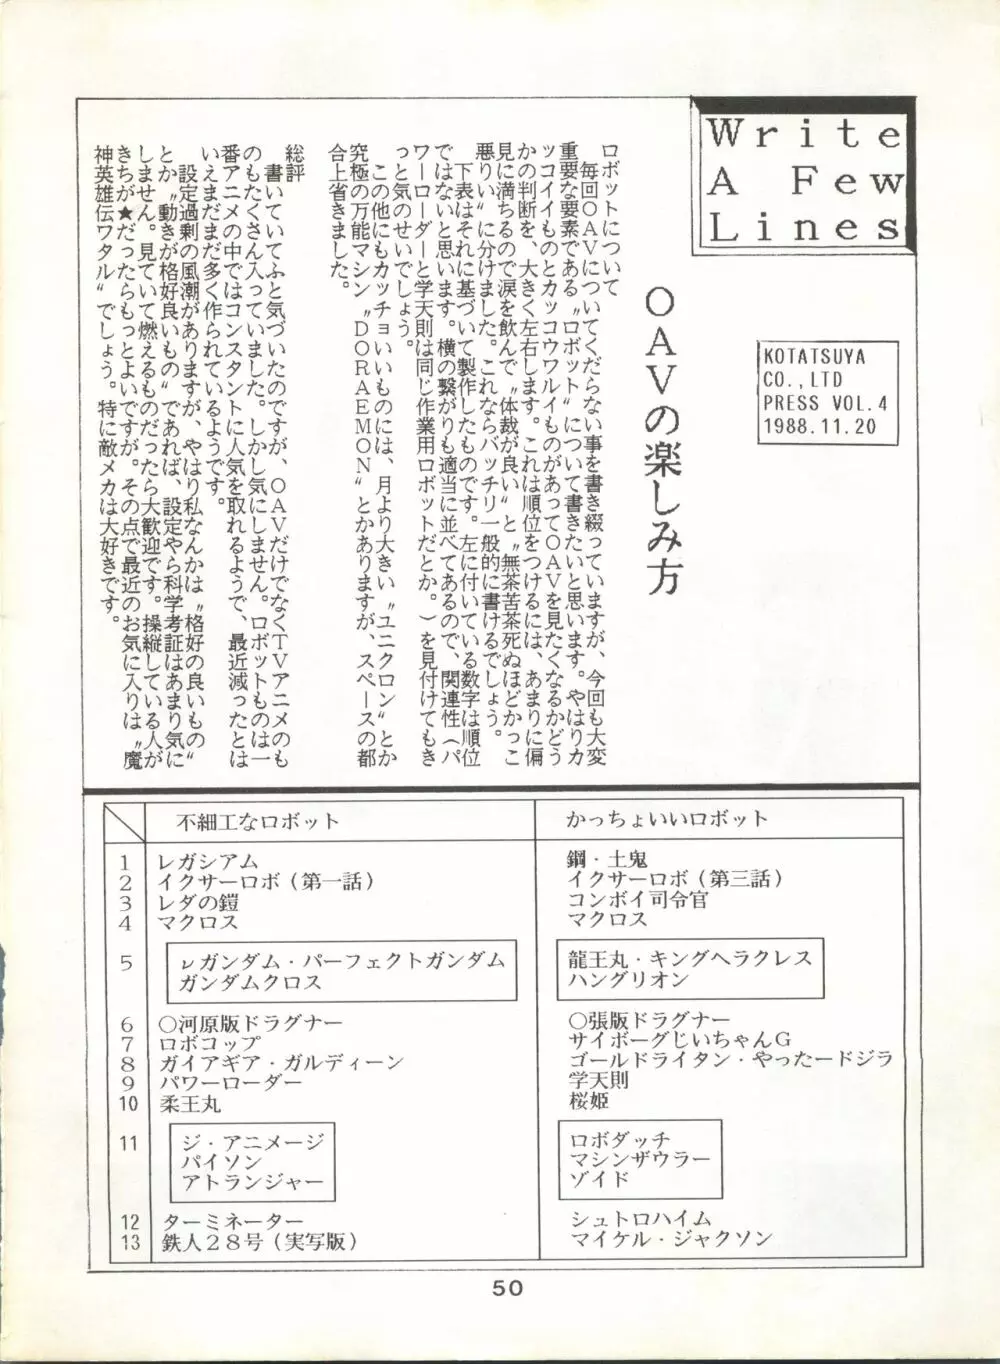 Write
A Few
Lines
KOTATSUYA
CO.,LTD
PRESS VOL.4
1988.11.20
OAVの楽しみ方
ロボットについて
毎回OAVについてくだらない事を書き綴っていますが、今回も大変
重要な要素である〝ロボット〟について書きたいと思います。やはりカ
ッコイイものとカッコウワルイものがあってOAVを見たくなるかどう
かの判断を、大きく左右します。これは順位をつけるには、あまりに偏
見に満ちるので涙を飲んで〝体裁が良い〟と〝無茶苦茶死ぬほどかっこ
悪りい〟に分けました。これならバッチリ一般的に書けるでしょう。
下表はそれに基づいて製作したものです。左に付いている数字は順位
ではないと思います。横の繋がりも適当に並べてあるので、関連性（パ
ワーローダーと学天則は同じ作業用ロボットだとか。）を見付けてもき
っと気のせいでしょう。
この他にもカッチョいいものには、月より大きい〝ユニクロン〟とか
究極の万能マシン〝DORAEMON〟とかありますが、スペースの都
合上省きました。
総評
書いていてふと気づいたのですが、OAVだけでなくTVアニメのも
のもたくさん入っていました。しかし気にしません。ロボットものは一
番アニメの中ではコンスタントに人気を取れるようで、最近減ったとは
いえまだまだ多く作られているようです。
設定過剰の風潮がありますが、やはり私なんかは〝格好の良いもの〟
とか〝動きが格好良いもの〟であれば、設定やら科学考証はあまり気に
しません。見ていて燃えるものだったら大歓迎です。操縦している人が
きちが★だったらもっとよいですが。その点で最近のお気に入りは〝魔
神英雄伝ワタル〟でしょう。特に敵メカは大好きです。
不細工なロボット かっちょいいロボット
1 レガシアム 鋼・土鬼
2 イクサーロボ（第一話） イクサーロボ（第三話）
3 レダの鎧 コンボイ司令官
4 マクロス マクロス
5 νガンダム・パーフェクトガンダム 龍王丸・キングヘラクレス
ガンダムクロス ハングリオン
6 ○河原版ドラグナー ○張版ドラグナー
7 ロボコップ サイボーグじいちゃんG
8 ガイアギア・ガルディーン ゴールドライタン・やったードジラ
9 パワーローダー 学天則
10 柔王丸 桜姫
11 ジ・アニメージ ロボダッチ
パイソン マシンザウラー
アトランジャー ゾイド
12 ターミネーター シュトロハイム
13 鉄人28号（実写版） マイケル・ジャクソン
50